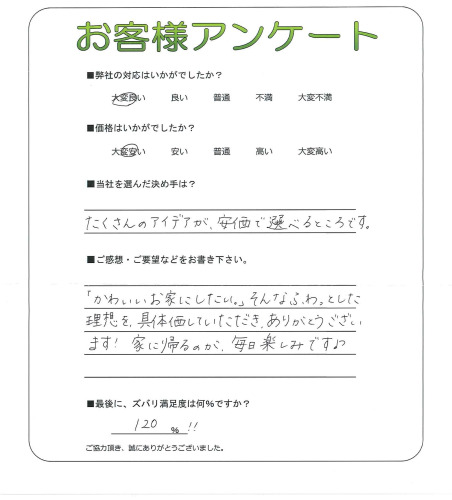 お客様アンケート
■弊社の対応はいかがでしたか？
大変良い 良い 普通 不満 大変不満
■価格はいかがでしたか？
大変安い 安い 普通 高い 大変高い
■当社を選んだ決め手は？
たくさんのアイデアが、安価で選べるところです。
■ご感想・ご要望などをお書き下さい。
「かわいいお家にしたい。」そんなふわっとした
理想を、具体価していただき、ありがとうござい
ます！家に帰るのが、毎日楽しみです♪
■最後に、ズバリ満足度は何％ですか？
120 % !!
ご協力頂き、誠にありがとうございました。